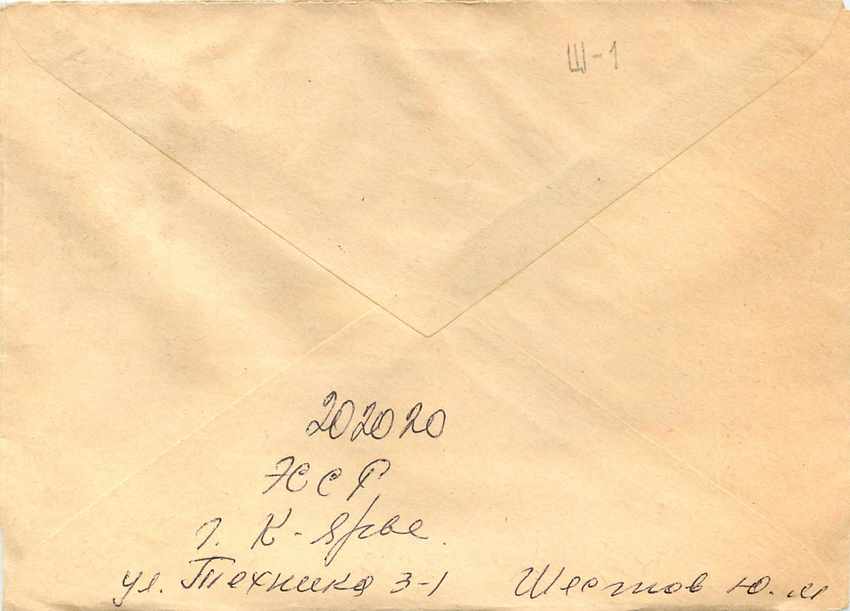 Ш-1
202020
ЭССР
г. К-Ярве.
ул. Техника 3-1 Шестов Ю. М